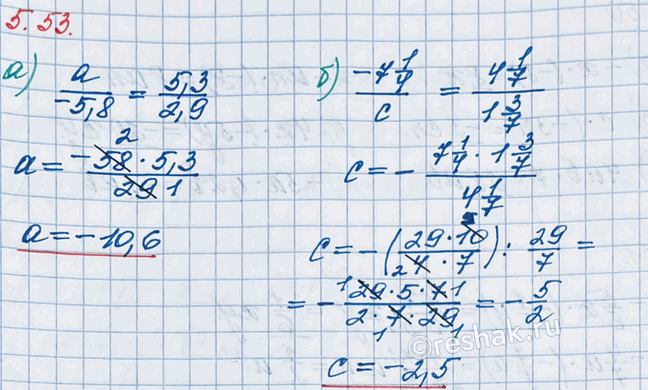 5.53.
а) a/-5,8 = 5,3/2,9
a = -58 · 5,3 / 29 2 1
a = -10,6
б) -7 1/4 / c = 4 1/7 / 1 3/7
c = - 7 1/4 · 1 3/7 / 4 1/7
c = -(29 · 10 / 4 · 7) : 29/7 = 5 2
= - 29 · 5 · 7 / 2 · 7 · 29 = - 5/2 1 1 1 1
c = -2,5
©reshak.ru